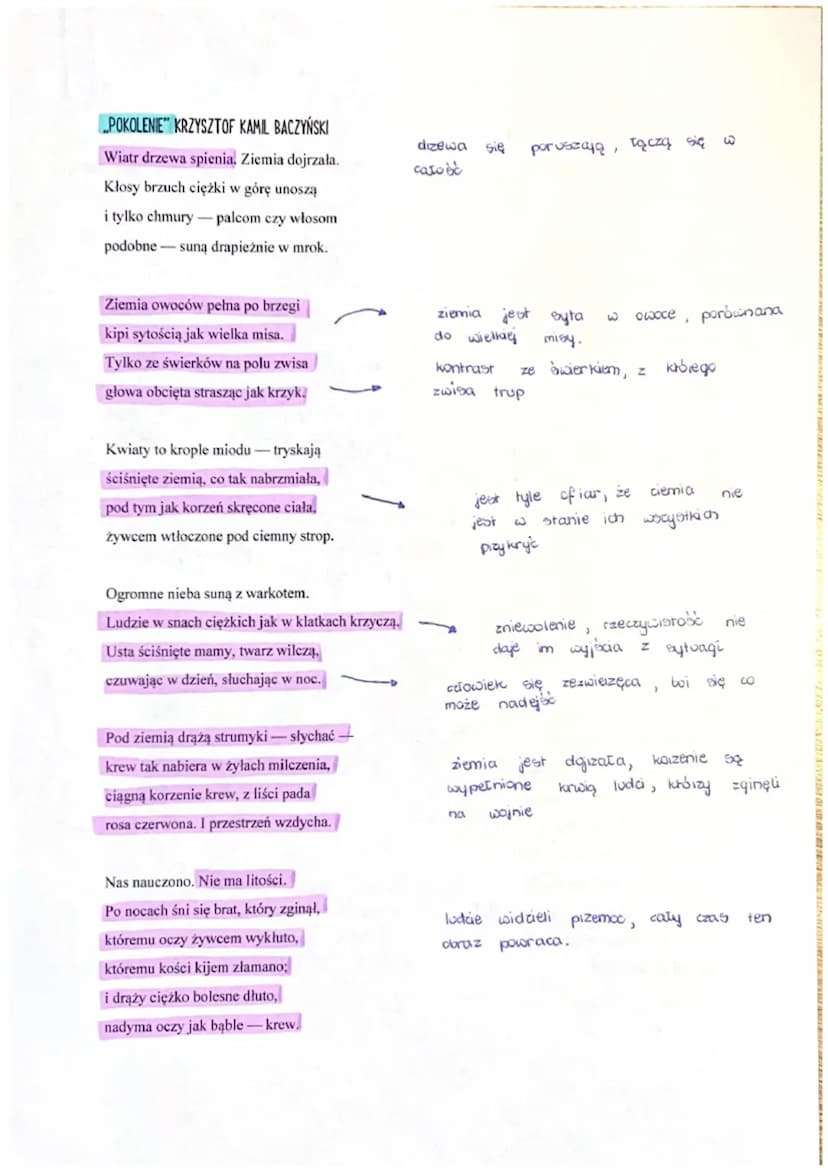 „POKOLENIE” KRZYSZTOF KAMIL BACZYŃSKI
Wiatr drzewa spienia. Ziemia dojrzała.
Kłosy brzuch ciężki w górę unoszą
i tylko chmury — palcom czy włosom
podobne — suną drapieżnie w mrok.
drzewa się poruszają, łączą się w
całość
Ziemia owoców pełna po brzegi
kipi sytością jak wielka misa.
Tylko ze świerków na polu zwisa
głowa obcięta strasząc jak krzyk.
ziemia jest syta w owoce, porównana
do wielkiej misy.
kontrast ze świerkiem, z którego
zwisa trup
Kwiaty to krople miodu — tryskają
ściśnięte ziemią, co tak nabrzmiała,
pod tym jak korzeń skręcone ciała,
żywcem wtłoczone pod ciemny strop.
jest tyle ofiar, że ziemia nie
jest w stanie ich wszystkich
przykryć
Ogromne nieba suną z warkotem.
Ludzie w snach ciężkich jak w klatkach krzyczą.
Usta ściśnięte mamy, twarz wilczą,
czuwając w dzień, słuchając w noc.
zniewolenie, rzeczywistość nie
daje im wyjścia z sytuacji
człowiek się zezwierzęca, boi się co
może nadejść
Pod ziemią drążą strumyki — słychać —
krew tak nabiera w żyłach milczenia,
ciągną korzenie krew, z liści pada
rosa czerwona. I przestrzeń wzdycha.
ziemia jest dojrzała, korzenie są
wypełnione krwią ludzi, którzy zginęli
na wojnie
Nas nauczono. Nie ma litości.
Po nocach śni się brat, który zginął,
któremu oczy żywcem wykłuto,
któremu kości kijem złamano;
i drąży ciężko bolesne dłuto,
nadyma oczy jak bąble — krew.
ludzie widzieli przemoc, cały czas ten
obraz powraca.